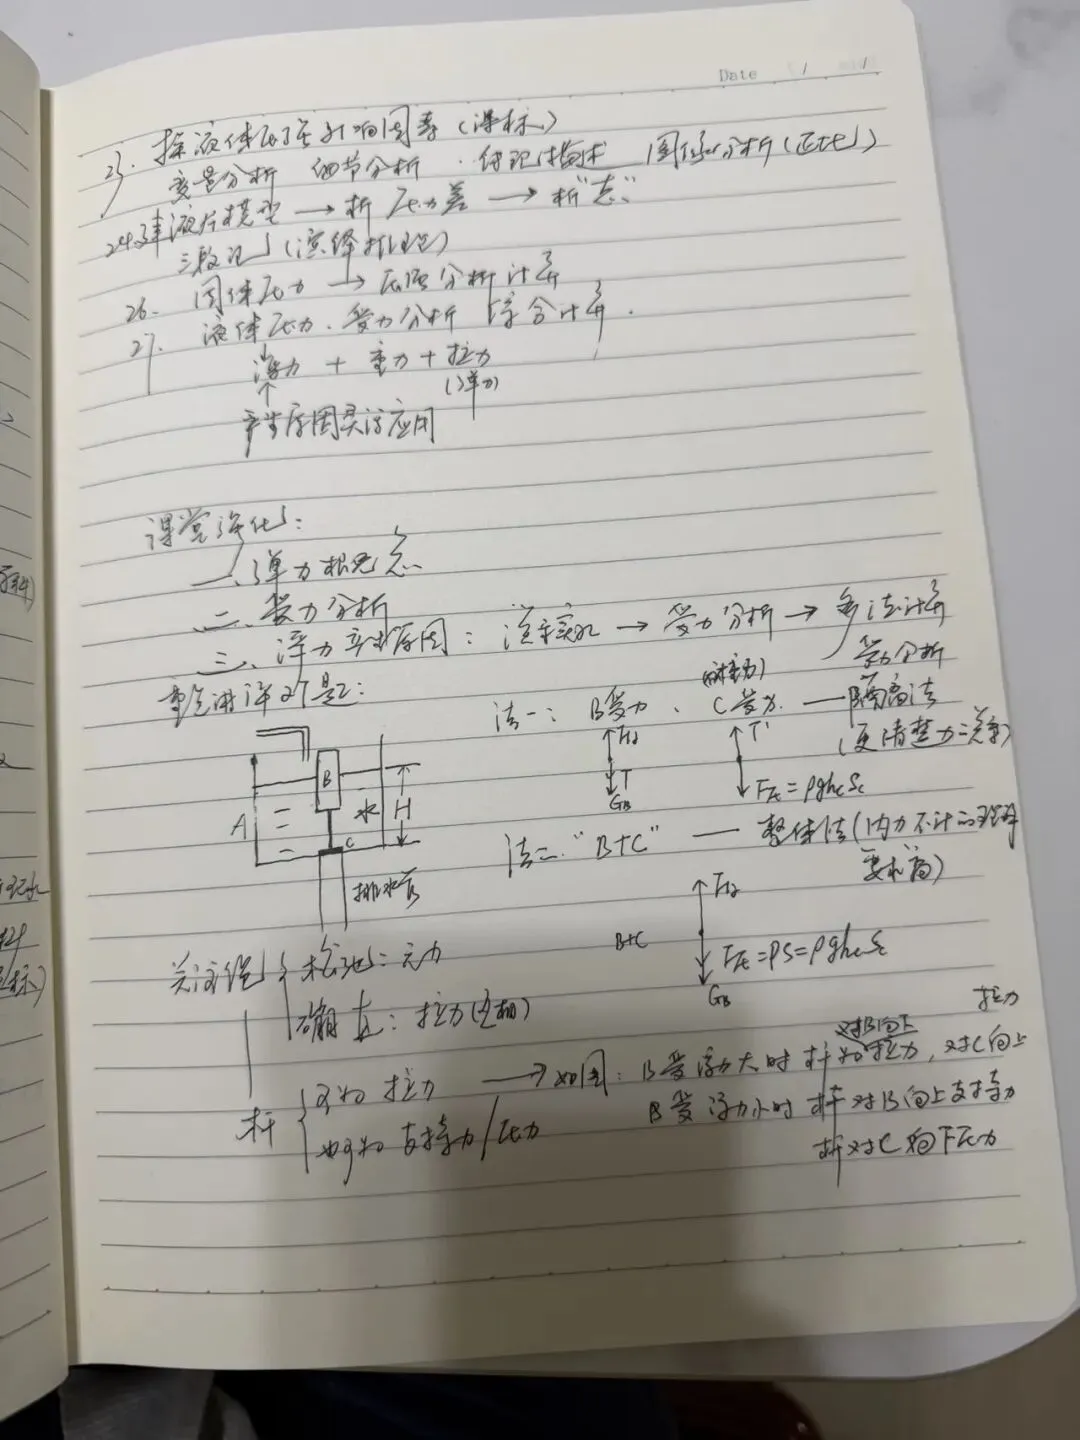 Date / /
23. 探液体压强影响因素（课标）
变量分析 细节分析 . 合理描述 图像分析（正比）
24. 建液片模型 → 析压力差 → 析"态"
（演绎推理）
26. 固体压力 → 压强分析计算
27. 液体压力、受力分析 综合计算.
浮力 + 重力 + 拉力
（弹力）
产生原因灵活应用
课堂强化：
一、弹力概念
二、受力分析
三、浮力产生原因： → 受力分析 → 多法计算
重点讲评27题：
法一： B受力 、 C受力 — 隔离法
受力分析
（更清楚力关系）
F浮
T
GB
T'
F压 = ρghcSc
A
B
C
水
H
排水管
法二. "B+C" — 整体法（内力不计的理解
要求高）
F浮
B+C
F压 = PS = ρghcSc
GB
关注绳
松弛：无力
绷直：拉力
杆
可为 拉力 → 如图：B受浮力大时 杆为拉力，对C向上
对B向下
拉力
也可为 支持力/压力
B受浮力小时 杆对B向上支持力
杆对C向下压力